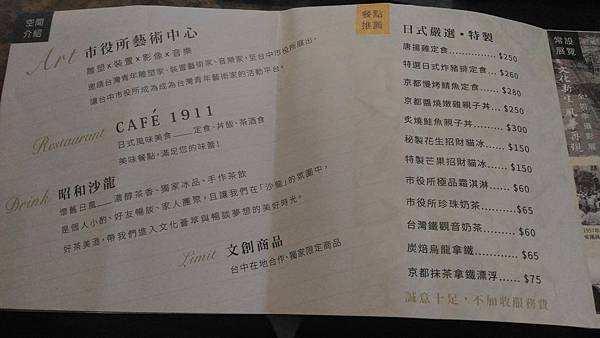 空間
介紹
Art 市役所藝術中心
雕塑×裝置×影像×音樂
邀請台灣青年雕塑家、裝置藝術家、音樂家,至台中市役所展出,
讓台中市役所成為成為台灣青年藝術家的活動平台。
Restaurant CAFÉ 1911
日式風味美食——定食、丼飯、茶酒食
美味餐點,滿足您的味蕾!
Drink 昭和沙龍
懷舊日風——濃醇茶香、獨家冰品、手作茶飲
是個人小酌、好友暢談、家人團聚,且讓我們在「沙龍」的氛圍中,
好茶美酒,帶我們進入文化薈萃與暢談夢想的美好時光。
Limit 文創商品
台中在地合作,獨家限定商品
餐點
推薦
日式嚴選・特製
唐揚雞定食 $250
特選日式炸豬排定食 $260
京都慢烤鯖魚定食 $280
京都醬燒嫩雞親子丼 $250
炙燒鮭魚親子丼 $300
秘製花生招財貓冰 $150
特製芒果招財貓冰 $150
市役所極品霜淇淋 $60
市役所珍珠奶茶 $65
台灣鐵觀音奶茶 $60
炭焙烏龍拿鐵 $65
京都抹茶拿鐵漂浮 $75
誠意十足,不加收服務費
常設
展覽